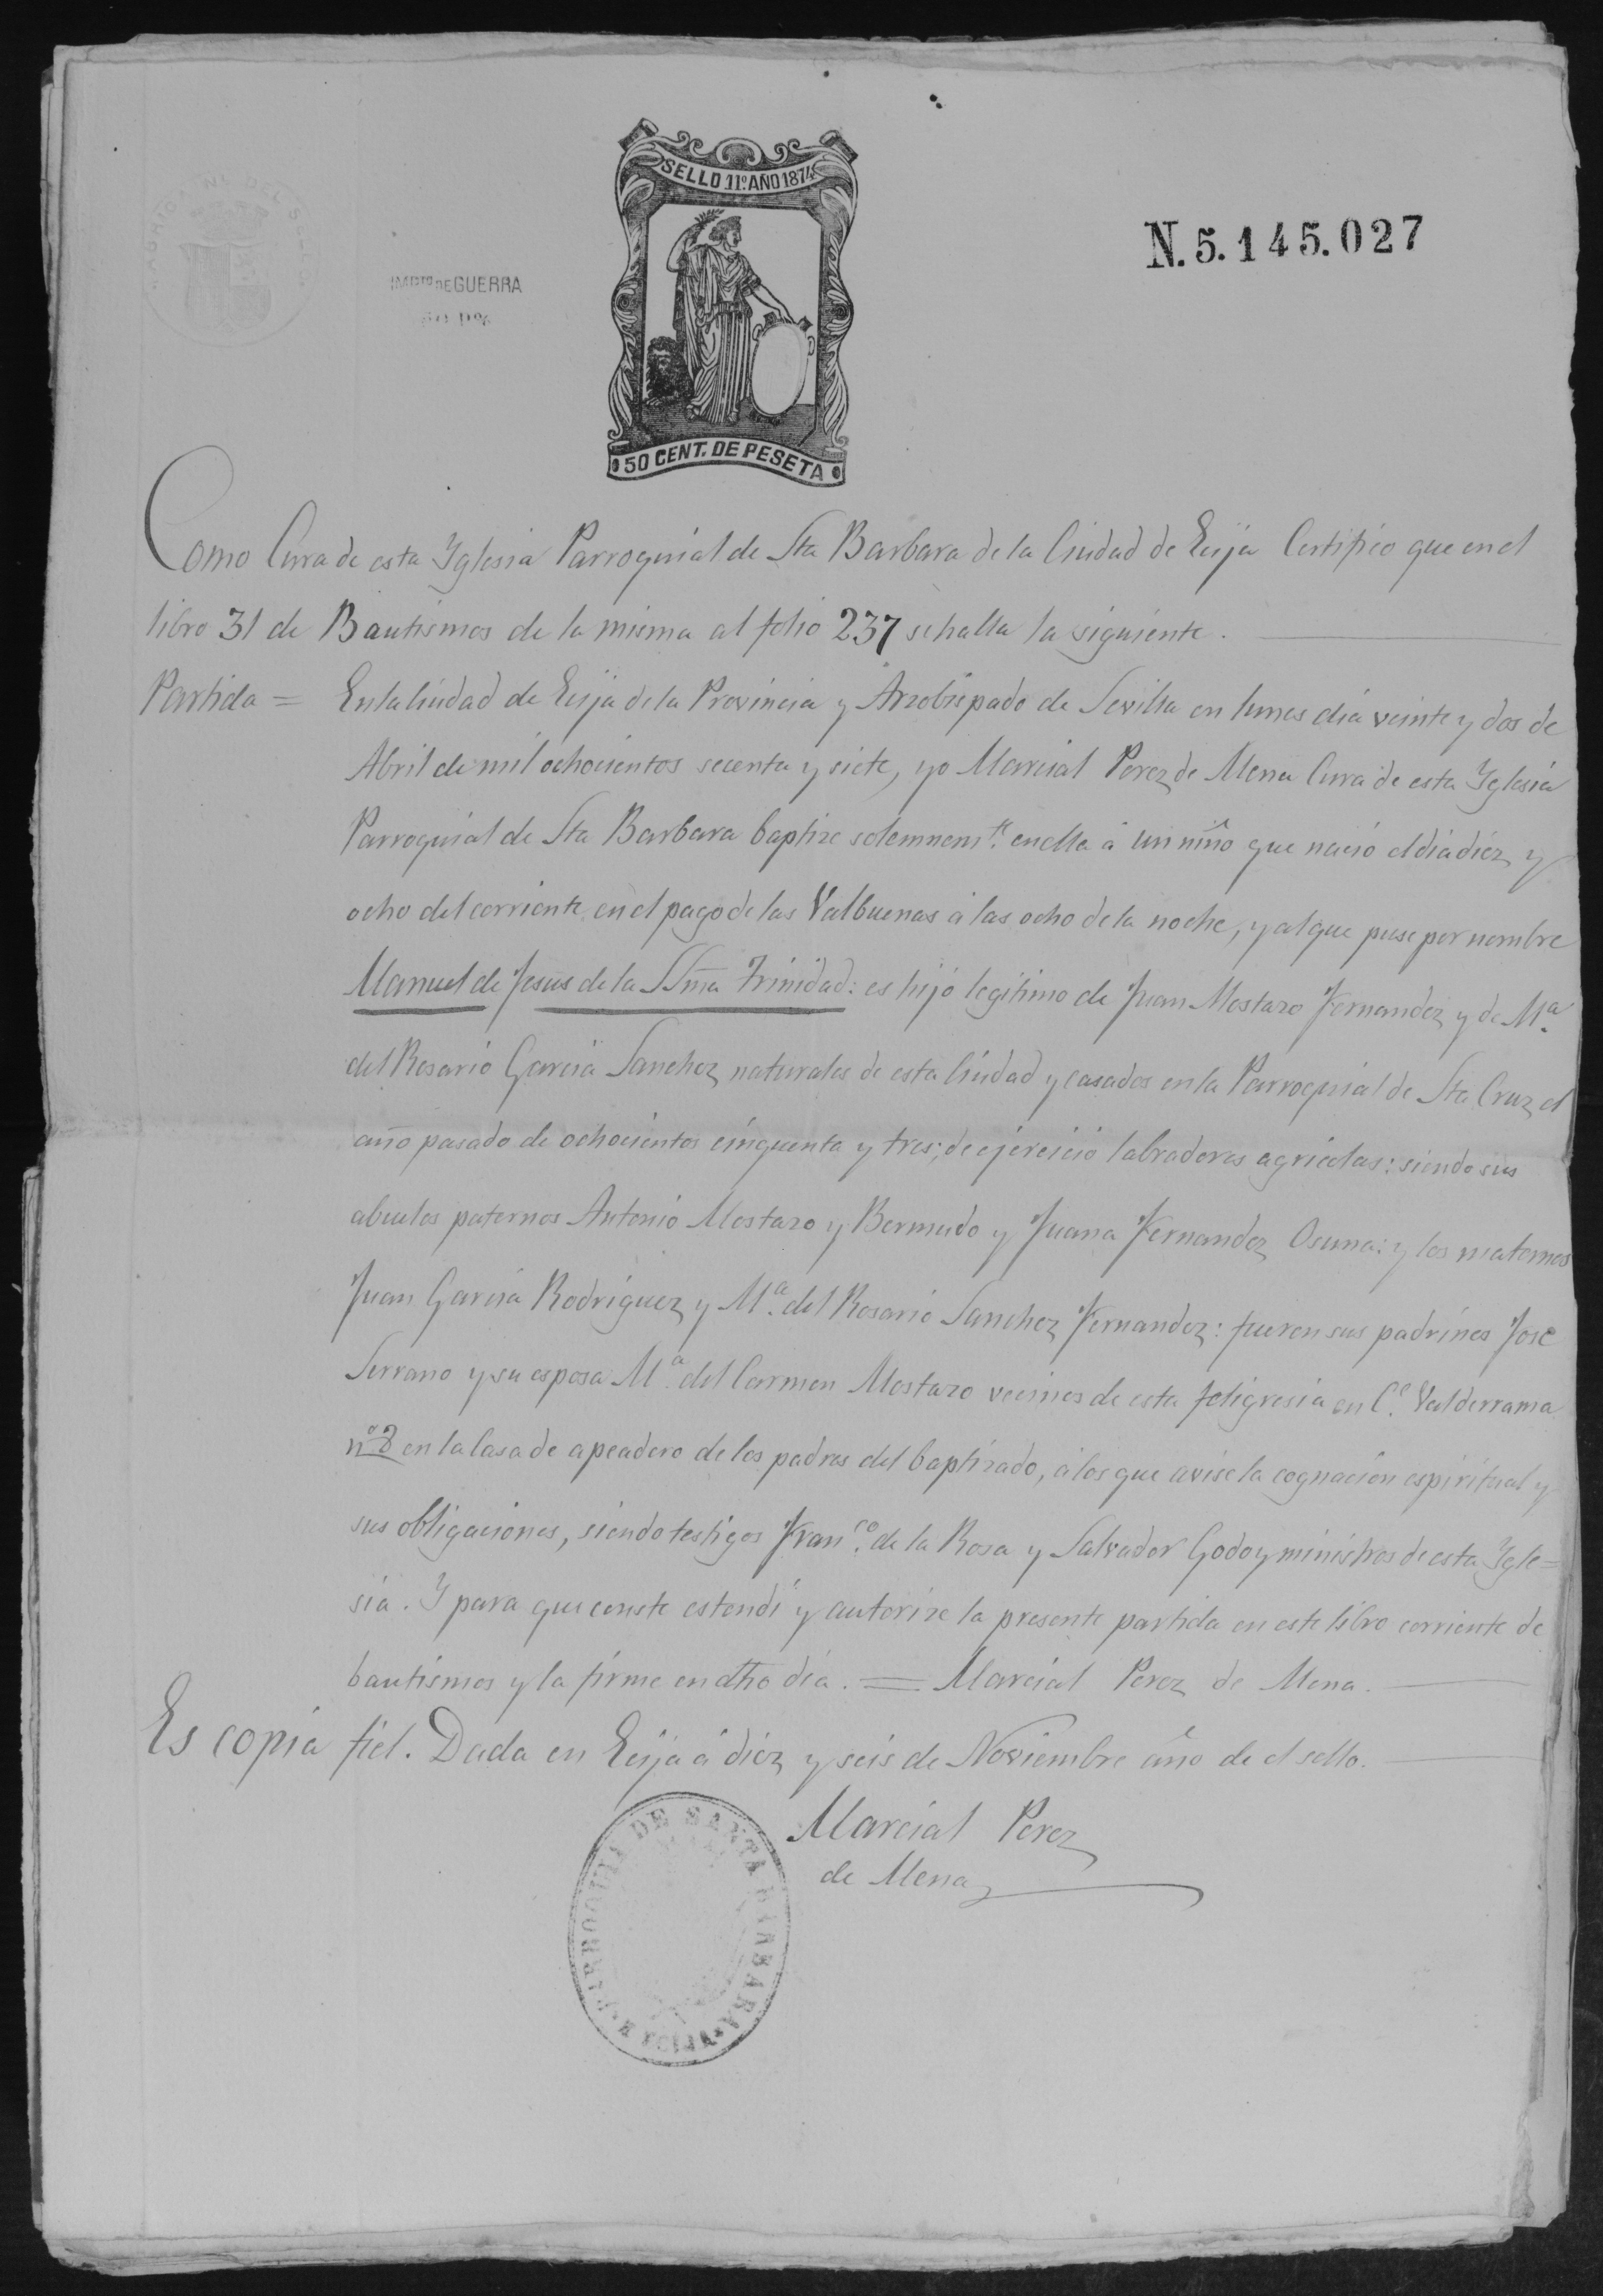 SELLO 11º AÑO 1874
N. 5.145.027
IMPTO DE GUERRA
50 CENT. DE PESETA
Como Cura de esta Yglesia Parroquial de Sta Barbara de la Ciudad de Ecija Certifico que en el
libro 31 de Bautismos de la misma al folio 237 se halla la siguiente.
Partida = En la Ciudad de Ecija de la Provincia y Arzobispado de Sevilla en lunes dia veinte y dos de
Abril de mil ochocientos secenta y siete, yo Marcial Perez de Mena Cura de esta Yglesia
Parroquial de Sta Barbara baptize solemnemte. en ella á un niño que nació el dia diez y
ocho del corriente en el pago de las Valbuenas á las ocho de la noche, y al que puse por nombre
Manuel de Jesus de la SSma Trinidad: es hijo legitimo de Juan Mostazo Fernandez y de Mª.
del Rosario Garcia Sanchez naturales de esta Ciudad y casados en la Parroquial de Sta Cruz el
año pasado de ochocientos cinquenta y tres; de ejercicio labradores agricolas: siendo sus
abuelos paternos Antonio Mostazo y Bermudo y Juana Fernandez Osuna: y los maternos
Juan Garcia Rodriguez y Mª. del Rosario Sanchez Fernandez: fueron sus padrinos Jose
Serrano y su esposa Mª. del Carmen Mostazo vecinos de esta feligresia en Cº. Valderrama
nº 8 en la Casa de apeadero de los padres del baptizado, á los que avise la cognacion espiritual y
sus obligaciones, siendo testigos Franco. de la Rosa y Salvador Godoy ministros de esta Ygle=
sia. Y para que conste estendí y autorize la presente partida en este libro corriente de
bautismos y la firme en dho dia. = Marcial Perez de Mena.
Es copia fiel. Dada en Ecija á diez y seis de Noviembre año de el sello.
Marcial Perez
de Mena
PARROQUIA DE SANTA BARBARA * ECIJA *